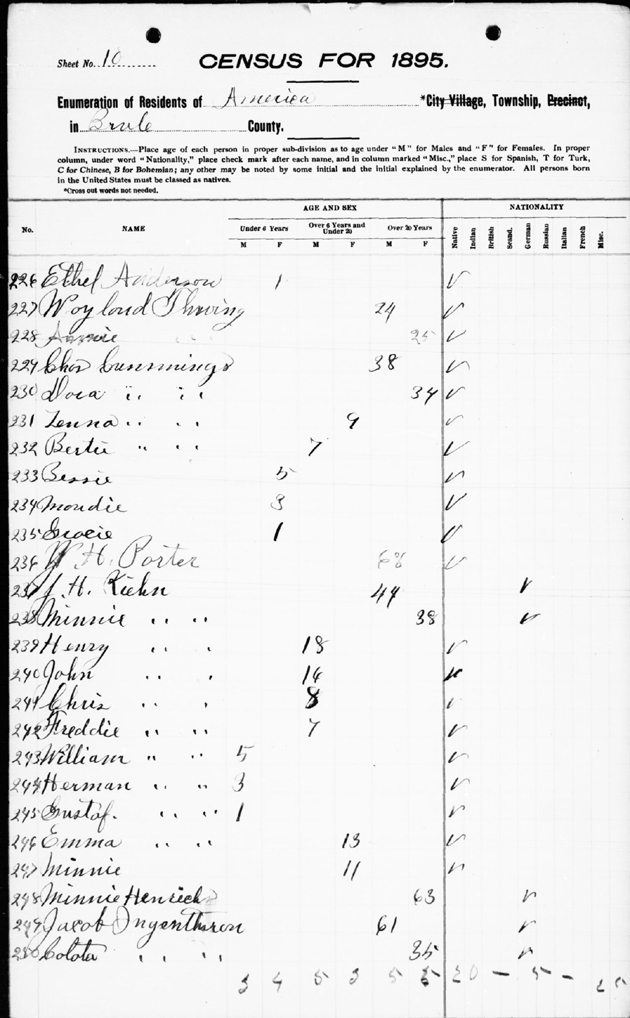 Sheet No. 10
CENSUS FOR 1895.
Enumeration of Residents of America *City Village, Township, Precinct,
in Brule County.
INSTRUCTIONS.—Place age of each person in proper sub-division as to age under "M" for Males and "F" for Females. In proper
column, under word "Nationality," place check mark after each name, and in column marked "Misc.," place S for Spanish, T for Turk,
C for Chinese, B for Bohemian; any other may be noted by some initial and the initial explained by the enumerator. All persons born
in the United States must be classed as natives.
*Cross out words not needed.
AGE AND SEX NATIONALITY
No. NAME Under 6 Years Over 6 Years and Under 20 Over 20 Years Native Indian British Scand. German Russian Italian French Misc.
M F M F M F
226 Ethel Anderson 1 ✓
227 Woylond Thwing 24 ✓
228 25 ✓
229 Chas Cummings 38 ✓
230 Dora " " 34 ✓
231 Zenna " " 9 ✓
232 Bertie " " 7 ✓
233 Bessie 5 ✓
234 Mondie 3 ✓
235 Gracie 1 ✓
236 W. H. Porter 68 ✓
237 J. H. Kiehn 44 ✓
238 Minnie " " 38 ✓
239 Henry " " 18 ✓
240 John " " 14 ✓
241 Chris " " 8 ✓
242 Freddie " " 7 ✓
243 William " " 5 ✓
244 Herman " " 3 ✓
245 Gustaf. " " 1 ✓
246 Emma " " 13 ✓
247 Minnie 11 ✓
248 Minnie Henrichs 63 ✓
249 Jacob Ingenthron 61 ✓
250 " " 35 ✓
3 4 5 3 5 5 20 – 5 –